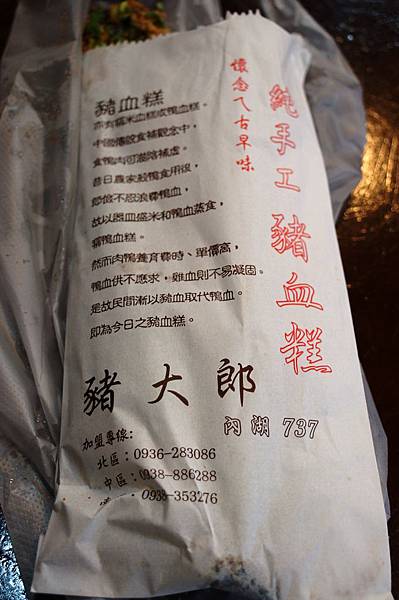 純手工豬血糕
懷念ㄟ古早味
豬血糕
亦有糯米血糕或鴨血糕。
中國傳統食補觀念中，
食鴨肉可滋陰補虛。
昔日農家殺鴨食用後，
節儉不忍浪費鴨血，
故以器皿盛米和鴨血蒸食，
稱鴨血糕。
然而肉鴨養育費時、單價高，
鴨血供不應求，雞血則不易凝固。
是故民間漸以豬血取代鴨血。
即為今日之豬血糕。
豬大郎
內湖 737
加盟專線:
北區:0936-283086
中區:0938-886288
0938-353276